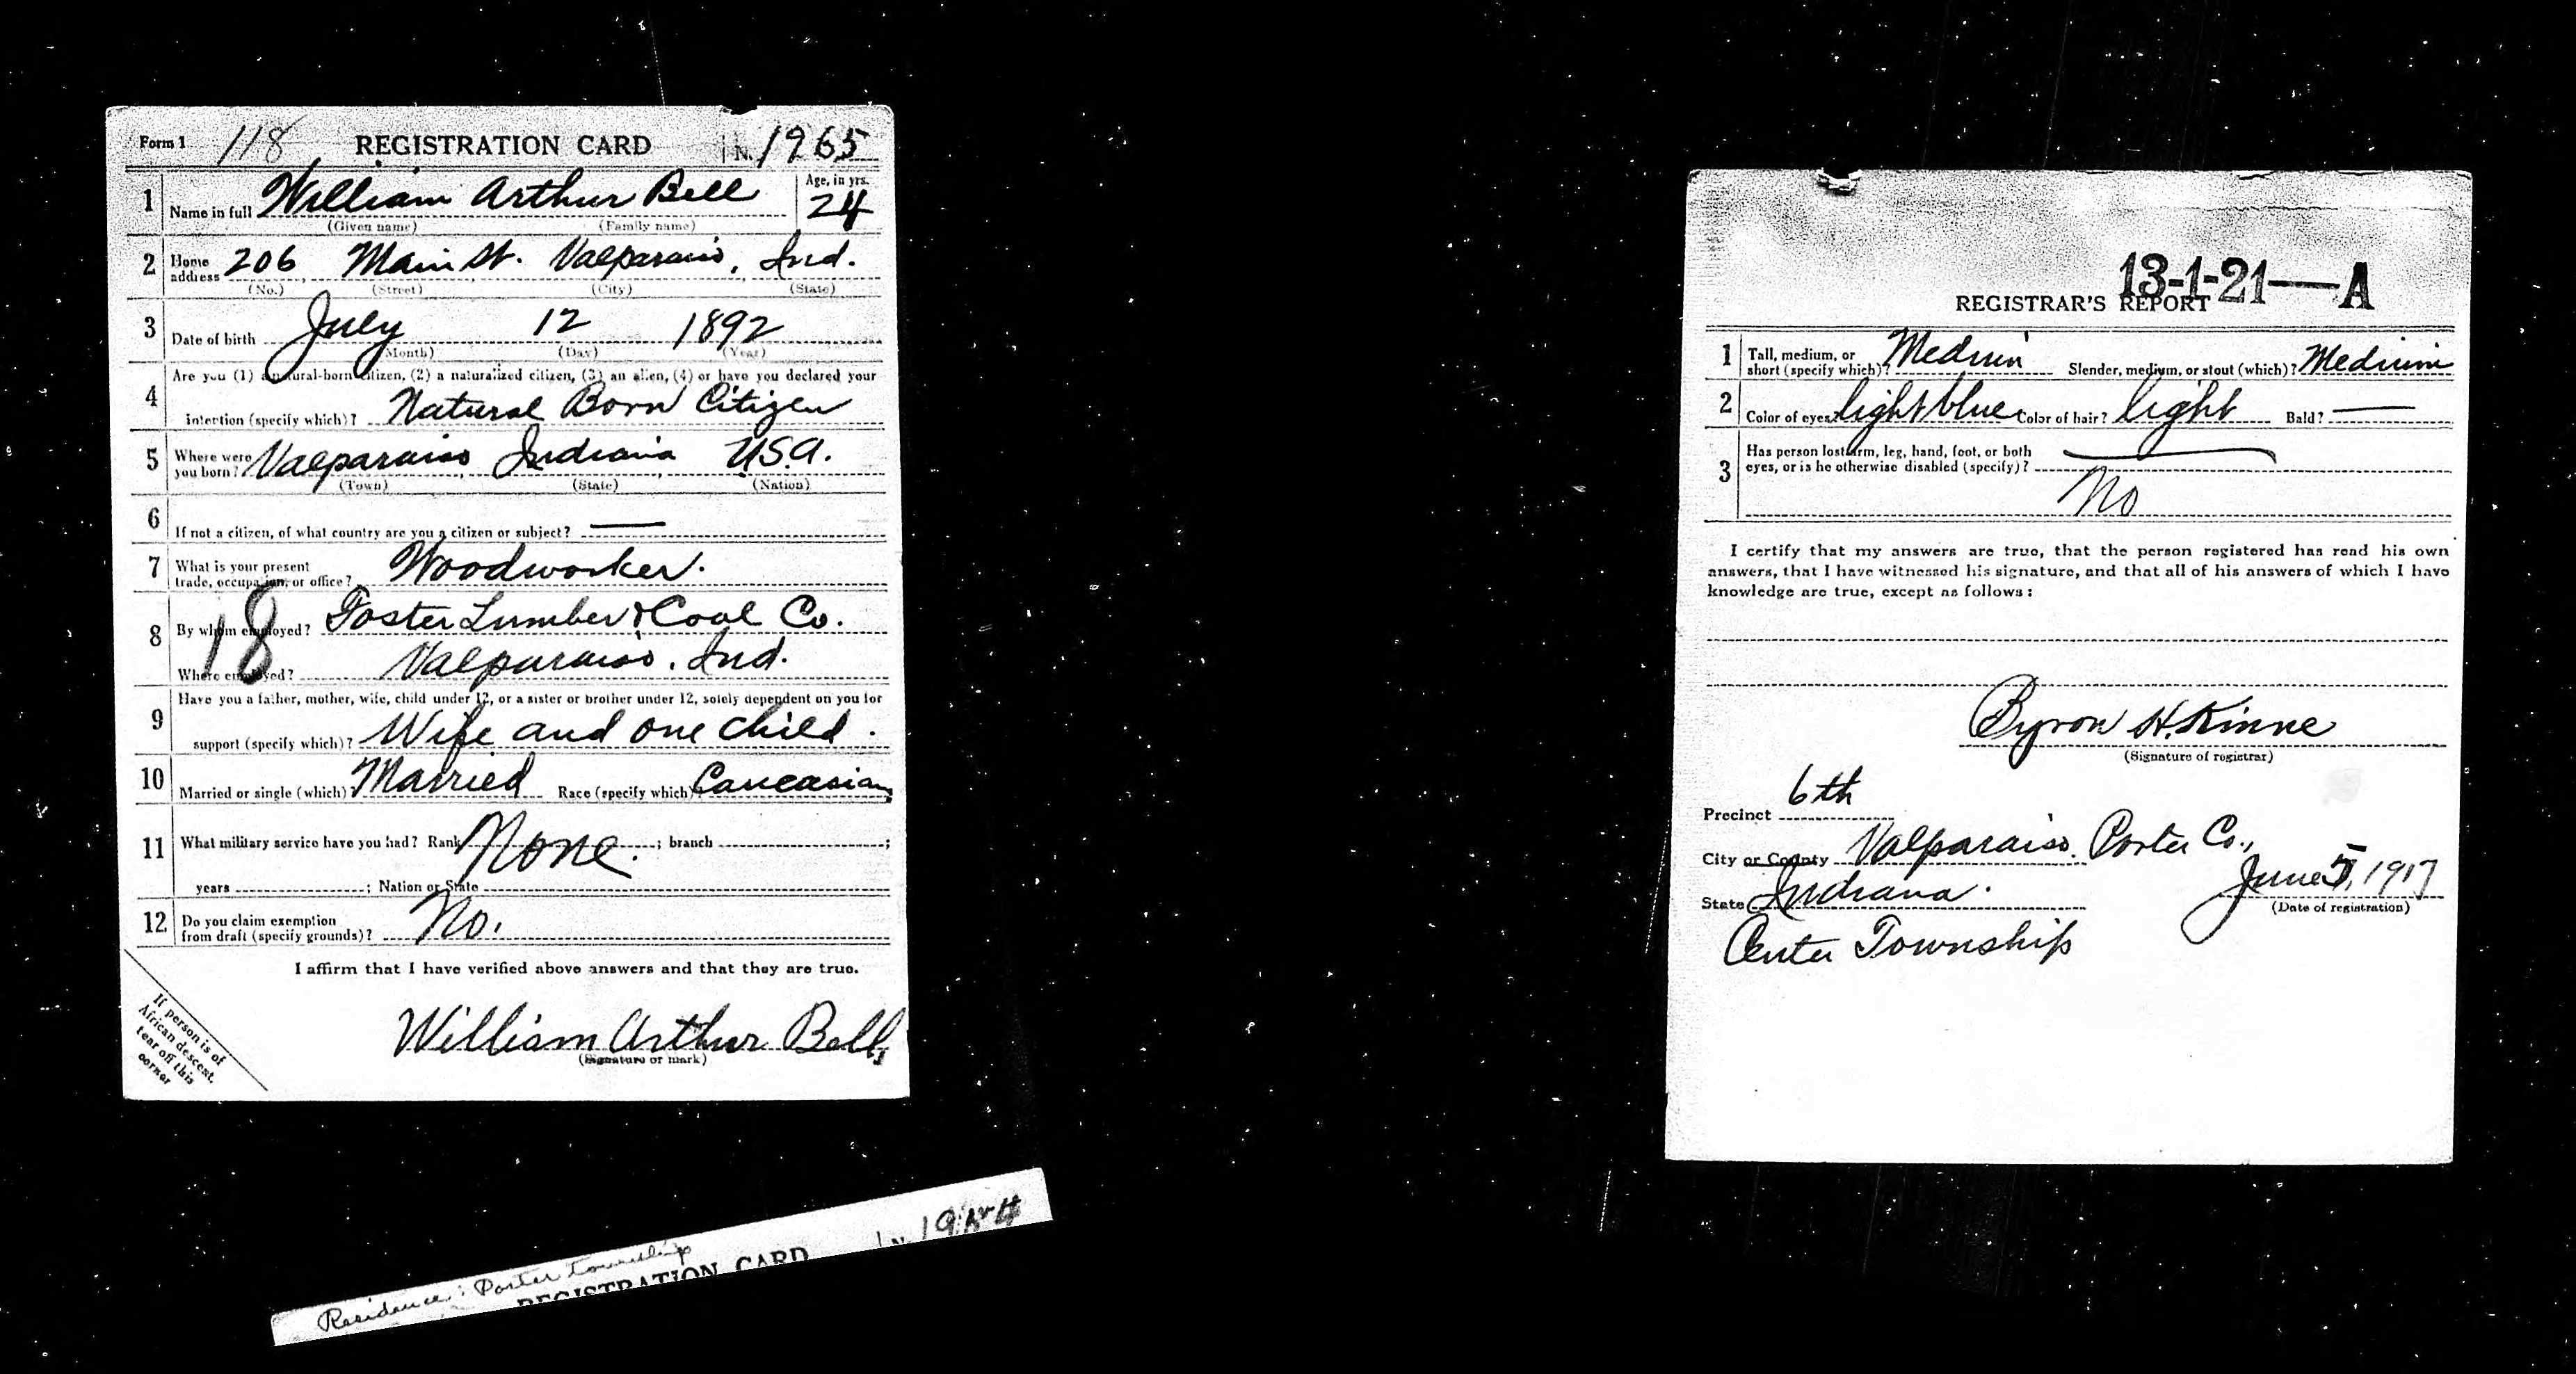 Form 1 118 REGISTRATION CARD No. 1965
1 Name in full William Arthur Bell Age, in yrs. 24
(Given name) (Family name)
2 Home address 206 Main St. Valparaiso, Ind.
(No.) (Street) (City) (State)
3 Date of birth July 12 1892
(Month) (Day) (Year)
4 Are you (1) a natural-born citizen, (2) a naturalized citizen, (3) an alien, (4) or have you declared your
intention (specify which)? Natural Born Citizen
5 Where were you born? Valparaiso Indiana U.S.A.
(Town) (State) (Nation)
6 If not a citizen, of what country are you a citizen or subject? —
7 What is your present trade, occupation, or office? Woodworker.
8 By whom employed? Foster Lumber & Coal Co.
18
Where employed? Valparaiso, Ind.
9 Have you a father, mother, wife, child under 12, or a sister or brother under 12, solely dependent on you for
support (specify which)? Wife and one child.
10 Married or single (which)? Married Race (specify which)? Caucasian
11 What military service have you had? Rank None. ; branch ;
years ; Nation or State
12 Do you claim exemption from draft (specify grounds)? No.
I affirm that I have verified above answers and that they are true.
William Arthur Bell
(Signature or mark)
If person is of
African descent,
tear off this
corner
Residence: Porter township
REGISTRATION CARD No.
13-1-21—A
REGISTRAR'S REPORT
1 Tall, medium, or short (specify which)? Medium Slender, medium, or stout (which)? Medium
2 Color of eyes? light blue Color of hair? light Bald? —
3 Has person lost arm, leg, hand, foot, or both
eyes, or is he otherwise disabled (specify)? —
No
I certify that my answers are true, that the person registered has read his own
answers, that I have witnessed his signature, and that all of his answers of which I have
knowledge are true, except as follows:
Byron H. Kinne
(Signature of registrar)
Precinct 6th
City or County Valparaiso. Porter Co.,
State Indiana. June 5, 1917
(Date of registration)
Center Township